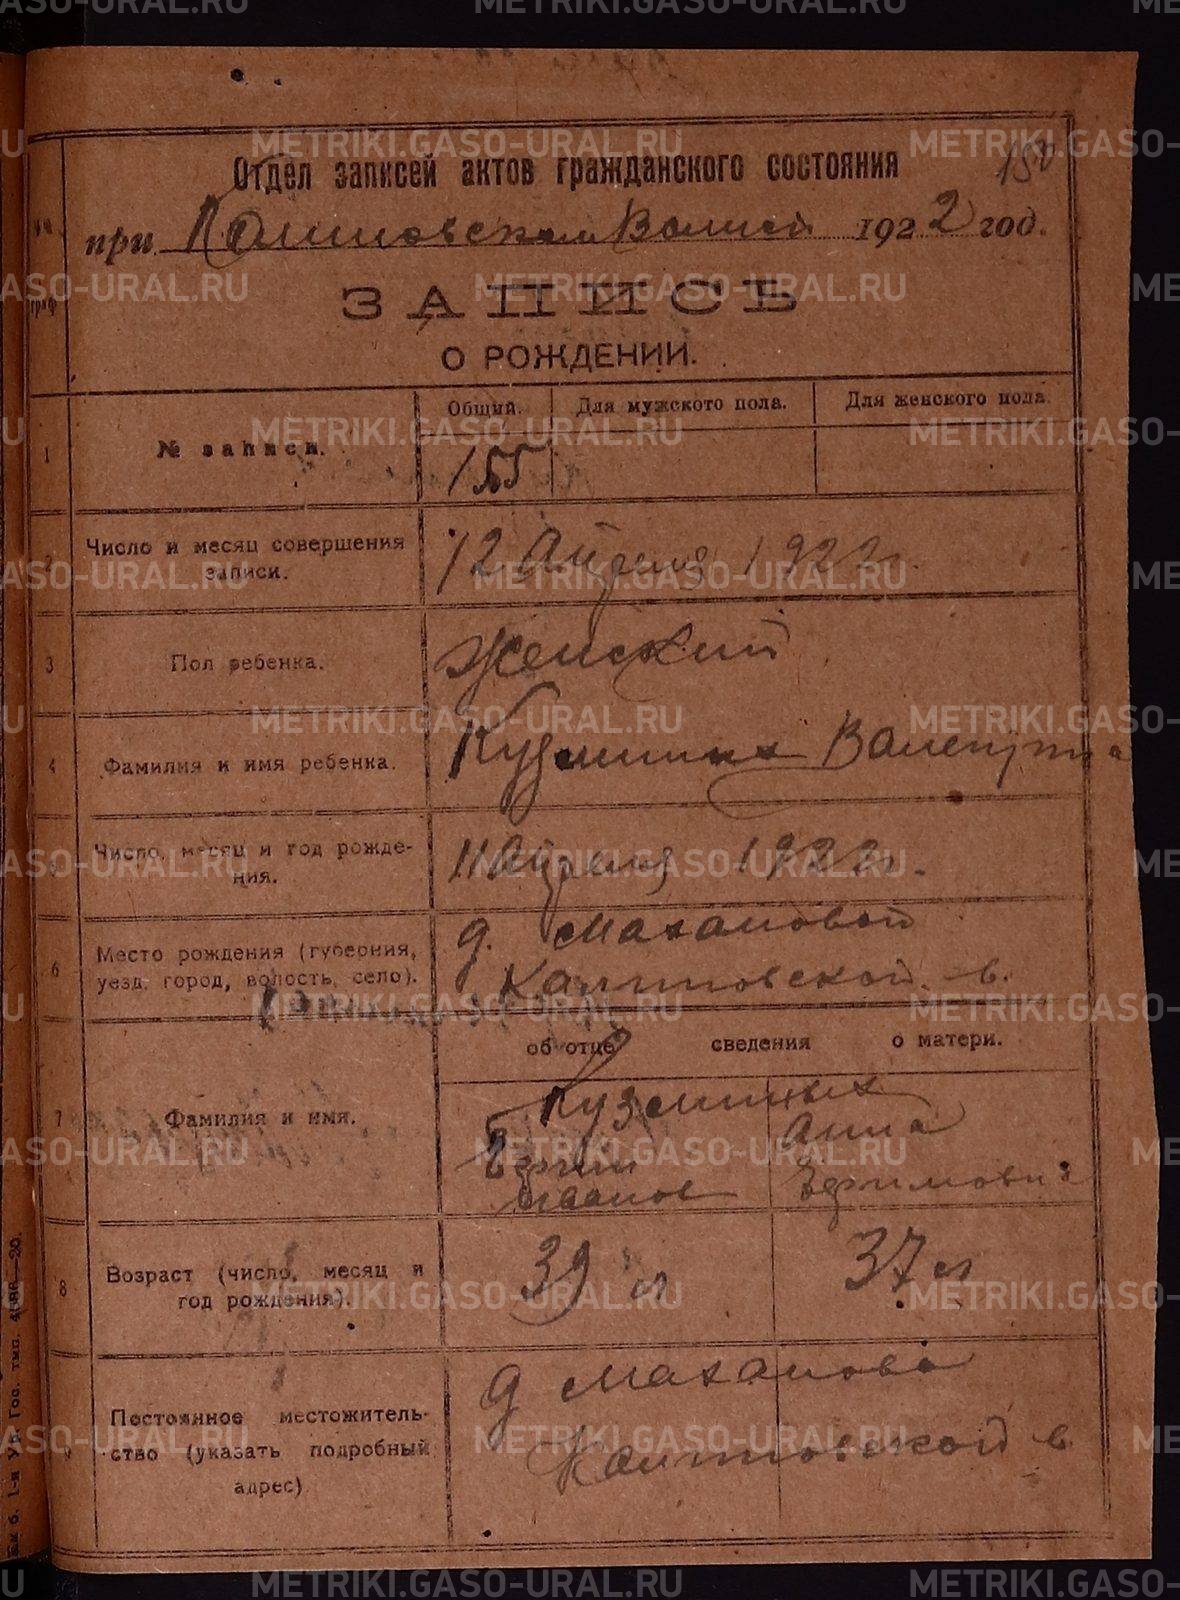 Отдел записей актов гражданского состояния
при Калиновском Волисп. 1922 год.
ЗАПИСЬ
О РОЖДЕНИИ.
Общий. Для мужского пола. Для женского пола.
1 № записи. 155
2 Число и месяц совершения
записи.
12 Апреля 1922 г.
3 Пол ребенка. Женский
4 Фамилия и имя ребенка. Кузминых Валентина
Число, месяц и год рожде-
ния.
11 Апреля 1922 г.
6 Место рождения (губерния,
уезд, город, волость, село).
д. Махановой
Калиновской в.
об отце сведения о матери.
7 Фамилия и имя.
Кузминых
Анна
Ефимовна
8 Возраст (число, месяц и
год рождения).
39 л 37 л
9 Постоянное местожитель-
ство (указать подробный
адрес)
д Маханова
Калиновской в
METRIKI.GASO-URAL.RU